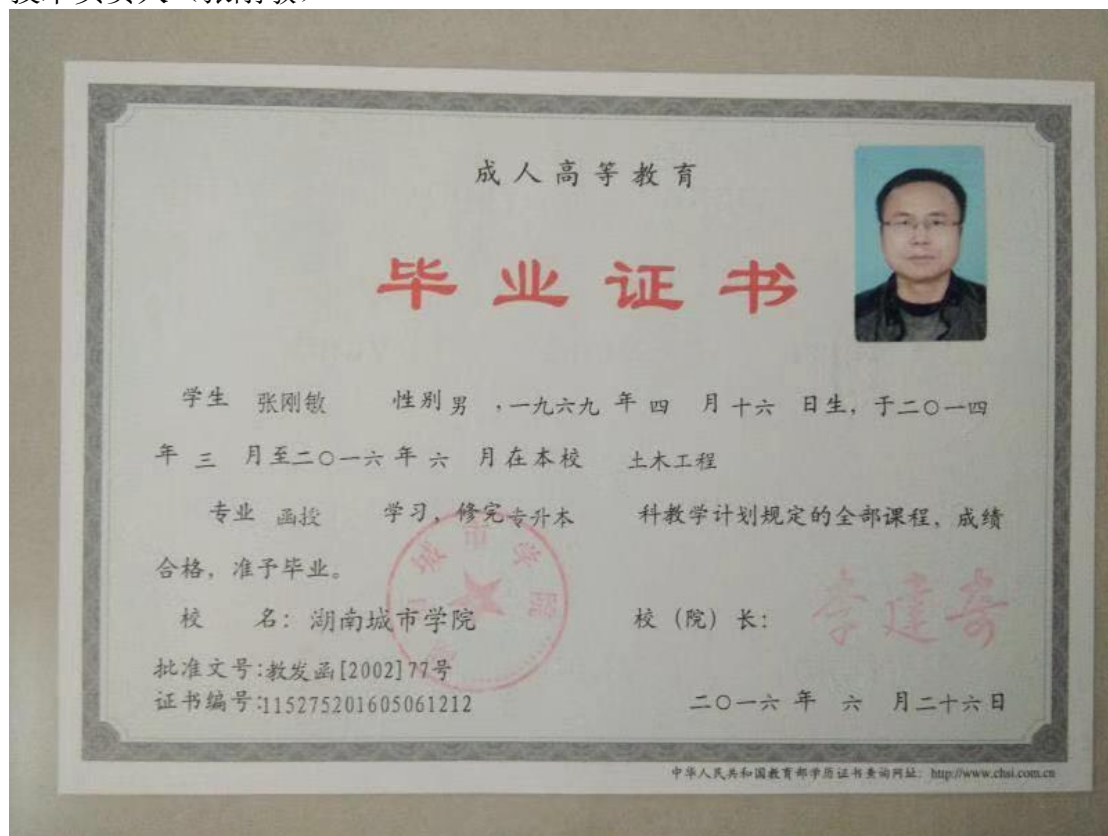 技术负责人（张刚敏）
成人高等教育
毕业证书
学生 张刚敏 性别 男 ，一九六九 年 四 月 十六 日生，于二〇一四
年 三 月至二〇一六 年 六 月在本校 土木工程
专业 函授 学习，修完 专升本 科教学计划规定的全部课程，成绩
合格，准予毕业。
校 名：湖南城市学院 校（院）长：李建奇
批准文号：教发函[2002]77号
证书编号：115275201605061212 二〇一六 年 六 月二十六日
中华人民共和国教育部学历证书查询网址：http://www.chsi.com.cn